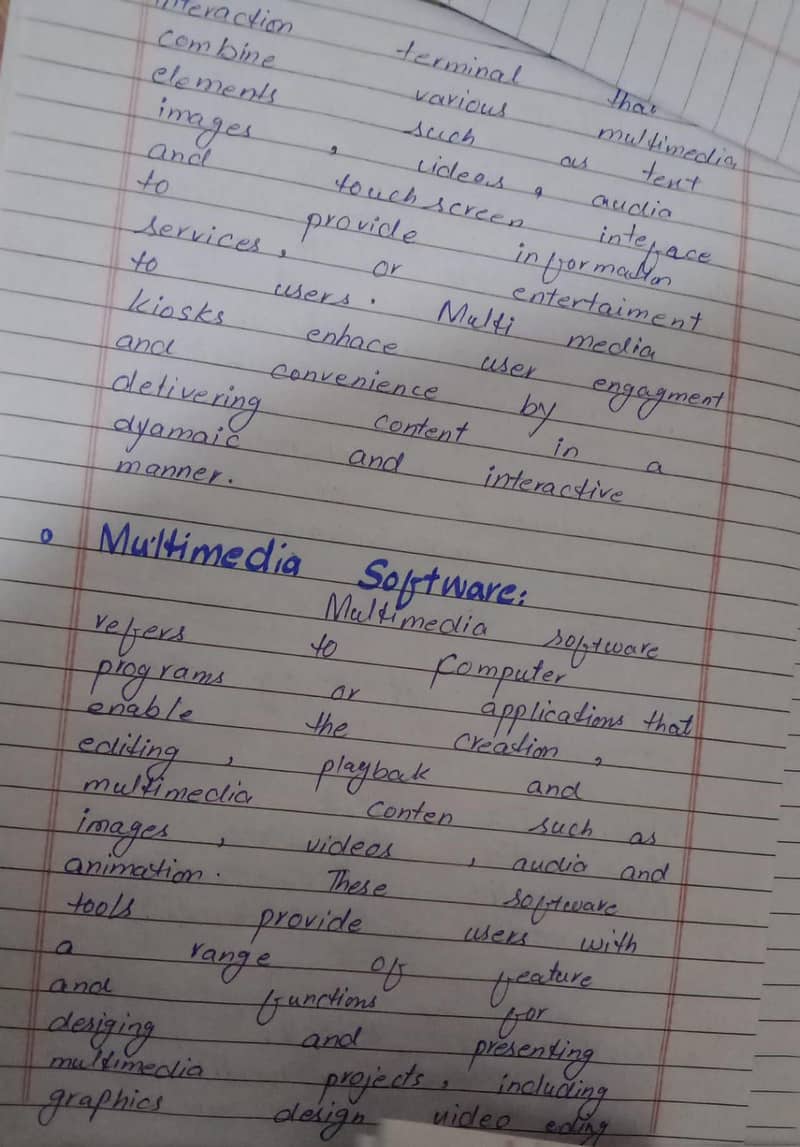 interaction terminal that
combine various multimedia
elements such as tent
images , videos, audio
and touch screen inteface
to provide information
services, or entertaiment
to users. Multi media
kiosks enhace user engagment
and convenience by
delivering content in a
dyamaic and interactive
manner.
Multimedia Software:
Multimedia software
refers to Computer
programs or applications that
enable the creation ,
editing , playbak and
multimedia conten such as
images , videos , audio and
animation. These software
tools provide users with
a range of feature
and functions for
desiging and presenting
multimedia projects, including
graphics design video eding